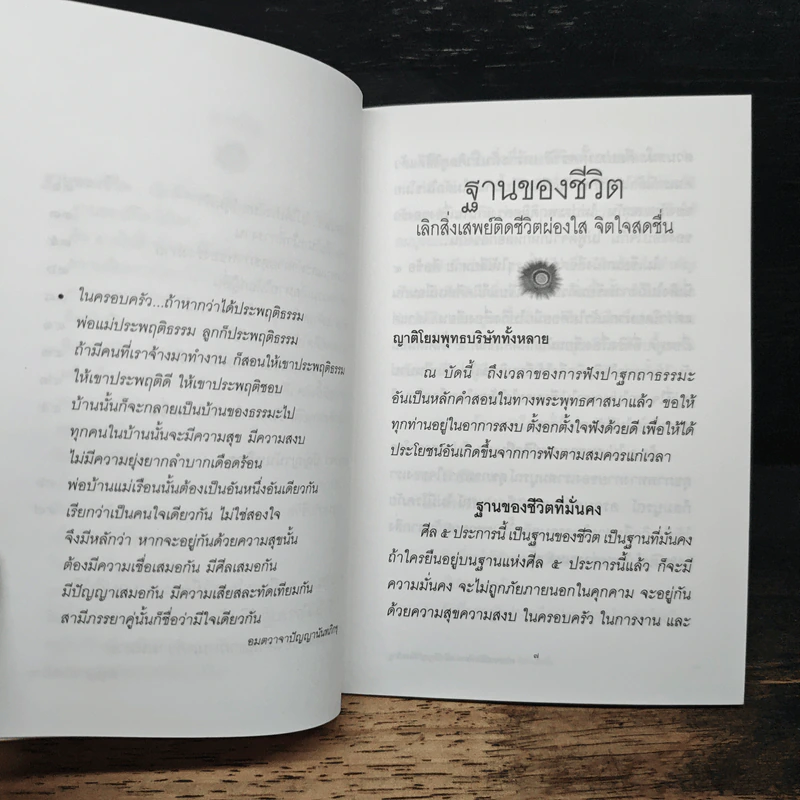 • ในครอบครัว...ถ้าหากว่าได้ประพฤติธรรม
พ่อแม่ประพฤติธรรม ลูกก็ประพฤติธรรม
ถ้ามีคนที่เราจ้างมาทำงาน ก็สอนให้เขาประพฤติธรรม
ให้เขาประพฤติดี ให้เขาประพฤติชอบ
บ้านนั้นก็จะกลายเป็นบ้านของธรรมะไป
ทุกคนในบ้านนั้นจะมีความสุข มีความสงบ
ไม่มีความยุ่งยากลำบากเดือดร้อน
พ่อบ้านแม่เรือนนั้นต้องเป็นอันหนึ่งอันเดียวกัน
เรียกว่าเป็นคนใจเดียวกัน ไม่ใช่สองใจ
จึงมีหลักว่า หากจะอยู่กันด้วยความสุขนั้น
ต้องมีความเชื่อเสมอกัน มีศีลเสมอกัน
มีปัญญาเสมอกัน มีความเสียสละทัดเทียมกัน
สามีภรรยาคู่นั้นก็ชื่อว่ามีใจเดียวกัน
อมตวาจาปัญญานันทภิกขุ
ฐานของชีวิต
เลิกสิ่งเสพย์ติดชีวิตผ่องใส จิตใจสดชื่น
ญาติโยมพุทธบริษัททั้งหลาย
ณ บัดนี้ ถึงเวลาของการฟังปาฐกถาธรรมะ
อันเป็นหลักคำสอนในทางพระพุทธศาสนาแล้ว ขอให้
ทุกท่านอยู่ในอาการสงบ ตั้งอกตั้งใจฟังด้วยดี เพื่อให้ได้
ประโยชน์อันเกิดขึ้นจากการฟังตามสมควรแก่เวลา
ฐานของชีวิตที่มั่นคง
ศีล ๕ ประการนี้ เป็นฐานของชีวิต เป็นฐานที่มั่นคง
ถ้าใครยืนอยู่บนฐานแห่งศีล ๕ ประการนี้แล้ว ก็จะมี
ความมั่นคง จะไม่ถูกภัยภายนอกในคุกคาม จะอยู่กัน
ด้วยความสุขความสงบ ในครอบครัว ในการงาน และ
๗